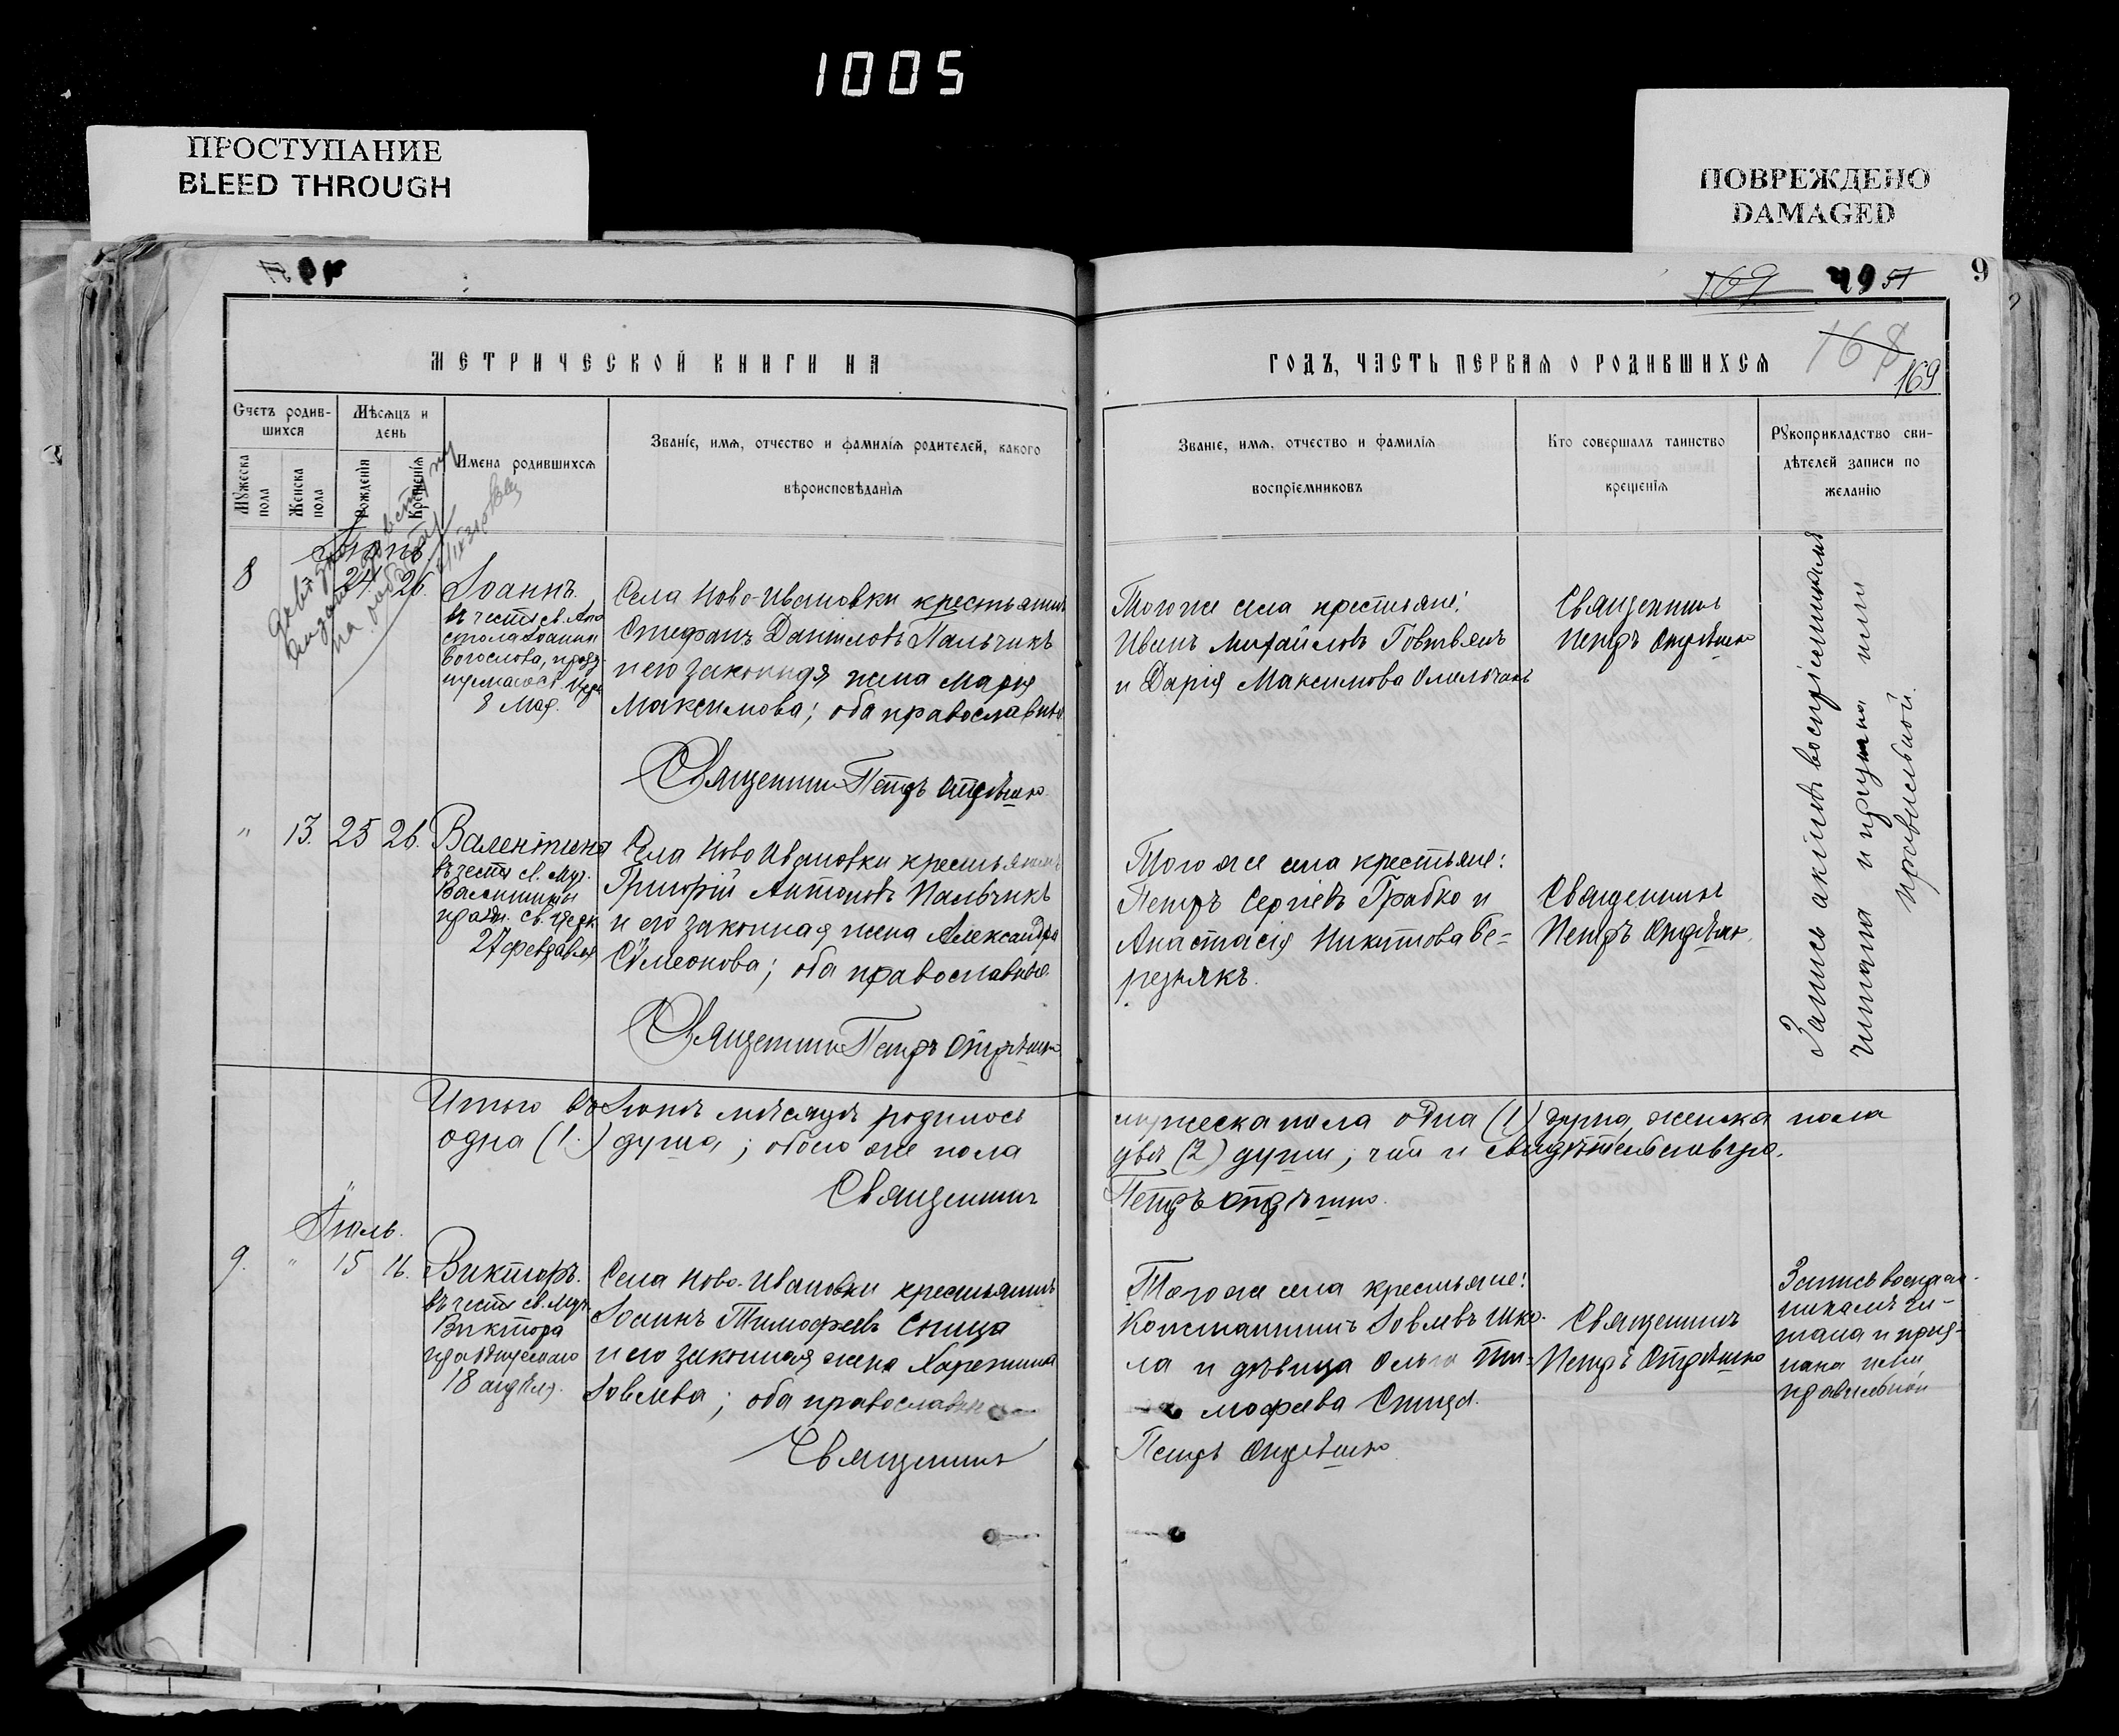 1005
ПРОСТУПАНИЕ
BLEED THROUGH
ПОВРЕЖДЕНО
DAMAGED
9
169
49 51
168
169
МЕТРИЧЕСКОЙ КНИГИ НА
ГОДЪ, ЧАСТЬ ПЕРВАЯ О РОДИВШИХСЯ
Счетъ родив-
шихся
Мужеска
пола
Женска
пола
Мѣсяцъ и
день
Рожденія
Крещенія
Имена родившихся
Званіе, имя, отчество и фамилія родителей, какого
вѣроисповѣданія
Званіе, имя, отчество и фамилія
воспріемниковъ
Кто совершалъ таинство
крещенія
Рукоприкладство сви-
дѣтелей записи по
желанію
8
24. 26.
Іоаннъ.
въ честь св. Апо
стола Іоанна
Богослова,
8 Мая.
Села Ново-Ивановки крестьянинъ
Стефанъ Даніиловъ Пальчикъ
и его законная жена Марія
Максимова; оба православные
Священникъ Петръ
Того же села крестьяне:
Иванъ Михайловъ
и Дарія Максимова
Священникъ
Петръ
Запись акта воспріемникамъ
читана и признана ими
правильной.
" 13. 25 26.
Валентина
въ честь св. Муч.
Валентины
празд. св. церк.
27 февраля
Села Ново Ивановки крестьянинъ
Григорій Антоновъ Пальчикъ
и его законная жена Александра
Симеонова; оба православные.
Священникъ Петръ
Того же села крестьяне:
Петръ Сергіевъ Грабко и
Анастасія Никитова Бе-
резнякъ.
Священникъ
Петръ
Итого въ Іюнѣ мѣсяцѣ родилось
мужеска пола одна (1) душа, женска пола
одна (1.) душа; обоего же пола
двѣ (2) души; чтó и свидѣтельствую.
Священникъ
Петръ
Іюль.
9. " 15 16.
Викторъ.
въ честь св. Муч.
Виктора
празднуемаго
18 апрѣля.
Села Ново-Ивановки крестьянинъ
Іоаннъ Тимофеевъ Спица
и его законная жена Харитина
Іовлева; оба православные
Священникъ
Того же села крестьяне:
Константинъ Іовлевъ Шко-
ла и дѣвица Ольга Ти-
мофеева Спица.
Петръ
Священникъ
Петръ
Запись воспріем-
никамъ чи-
тана и приз-
нана ими
правильной